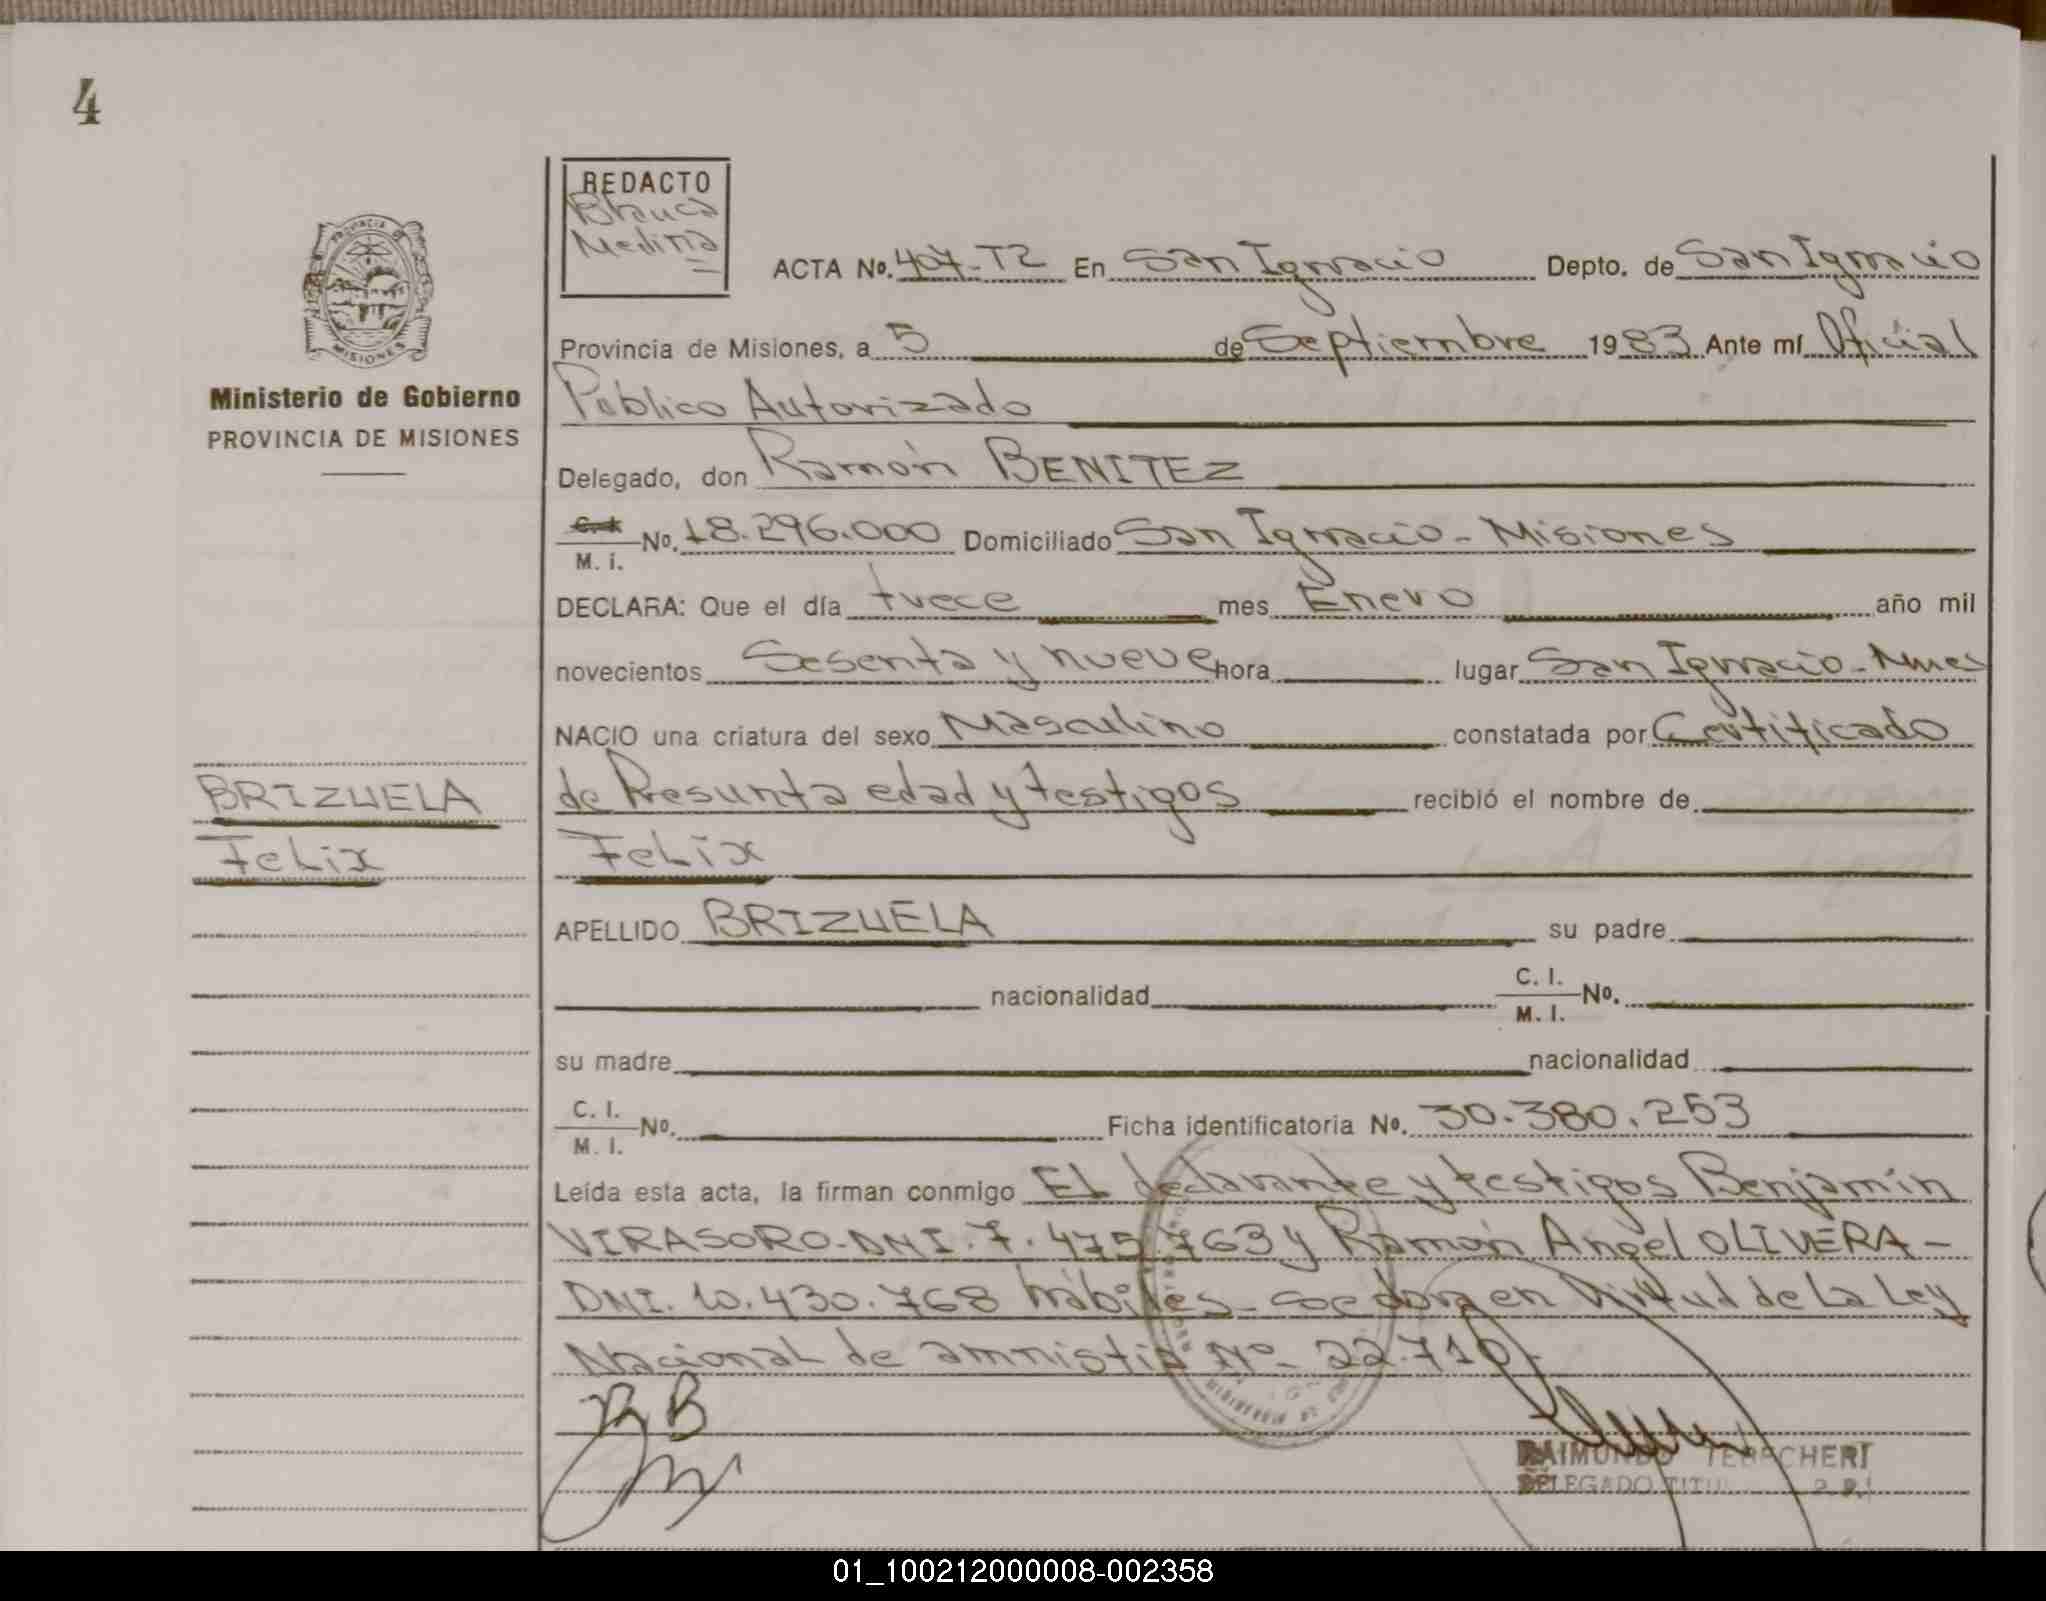 4
REDACTO
Blanca
Medina
PROVINCIA DE
MISIONES
Ministerio de Gobierno
PROVINCIA DE MISIONES
ACTA No. 407-T2 En San Ignacio Depto. de San Ignacio
Provincia de Misiones, a 5 de Septiembre 1983 Ante mí Oficial
Publico Autorizado
Delegado, don Ramón BENITEZ
C. I.
M. i. No. 18.296.000 Domiciliado San Ignacio - Misiones
DECLARA: Que el día trece mes Enero año mil
novecientos Sesenta y nueve hora lugar San Ignacio - Mnes
NACIO una criatura del sexo Masculino constatada por Certificado
de Presunta edad y testigos recibió el nombre de
Felix
BRIZUELA
Felix
APELLIDO BRIZUELA su padre
nacionalidad C. I.
M. I. No.
su madre nacionalidad
C. I.
M. I. No. Ficha identificatoria No. 30.380.253
Leída esta acta, la firman conmigo El declarante y testigos Benjamín
VIRASORO-DNI. 7.475.763 y Ramón Angel OLIVERA-
DNI. 10.430.768 hábiles - en Virtud de La Ley
Nacional de amnistia Nº- 22.710
RAIMUNDO
DELEGADO
01_100212000008-002358